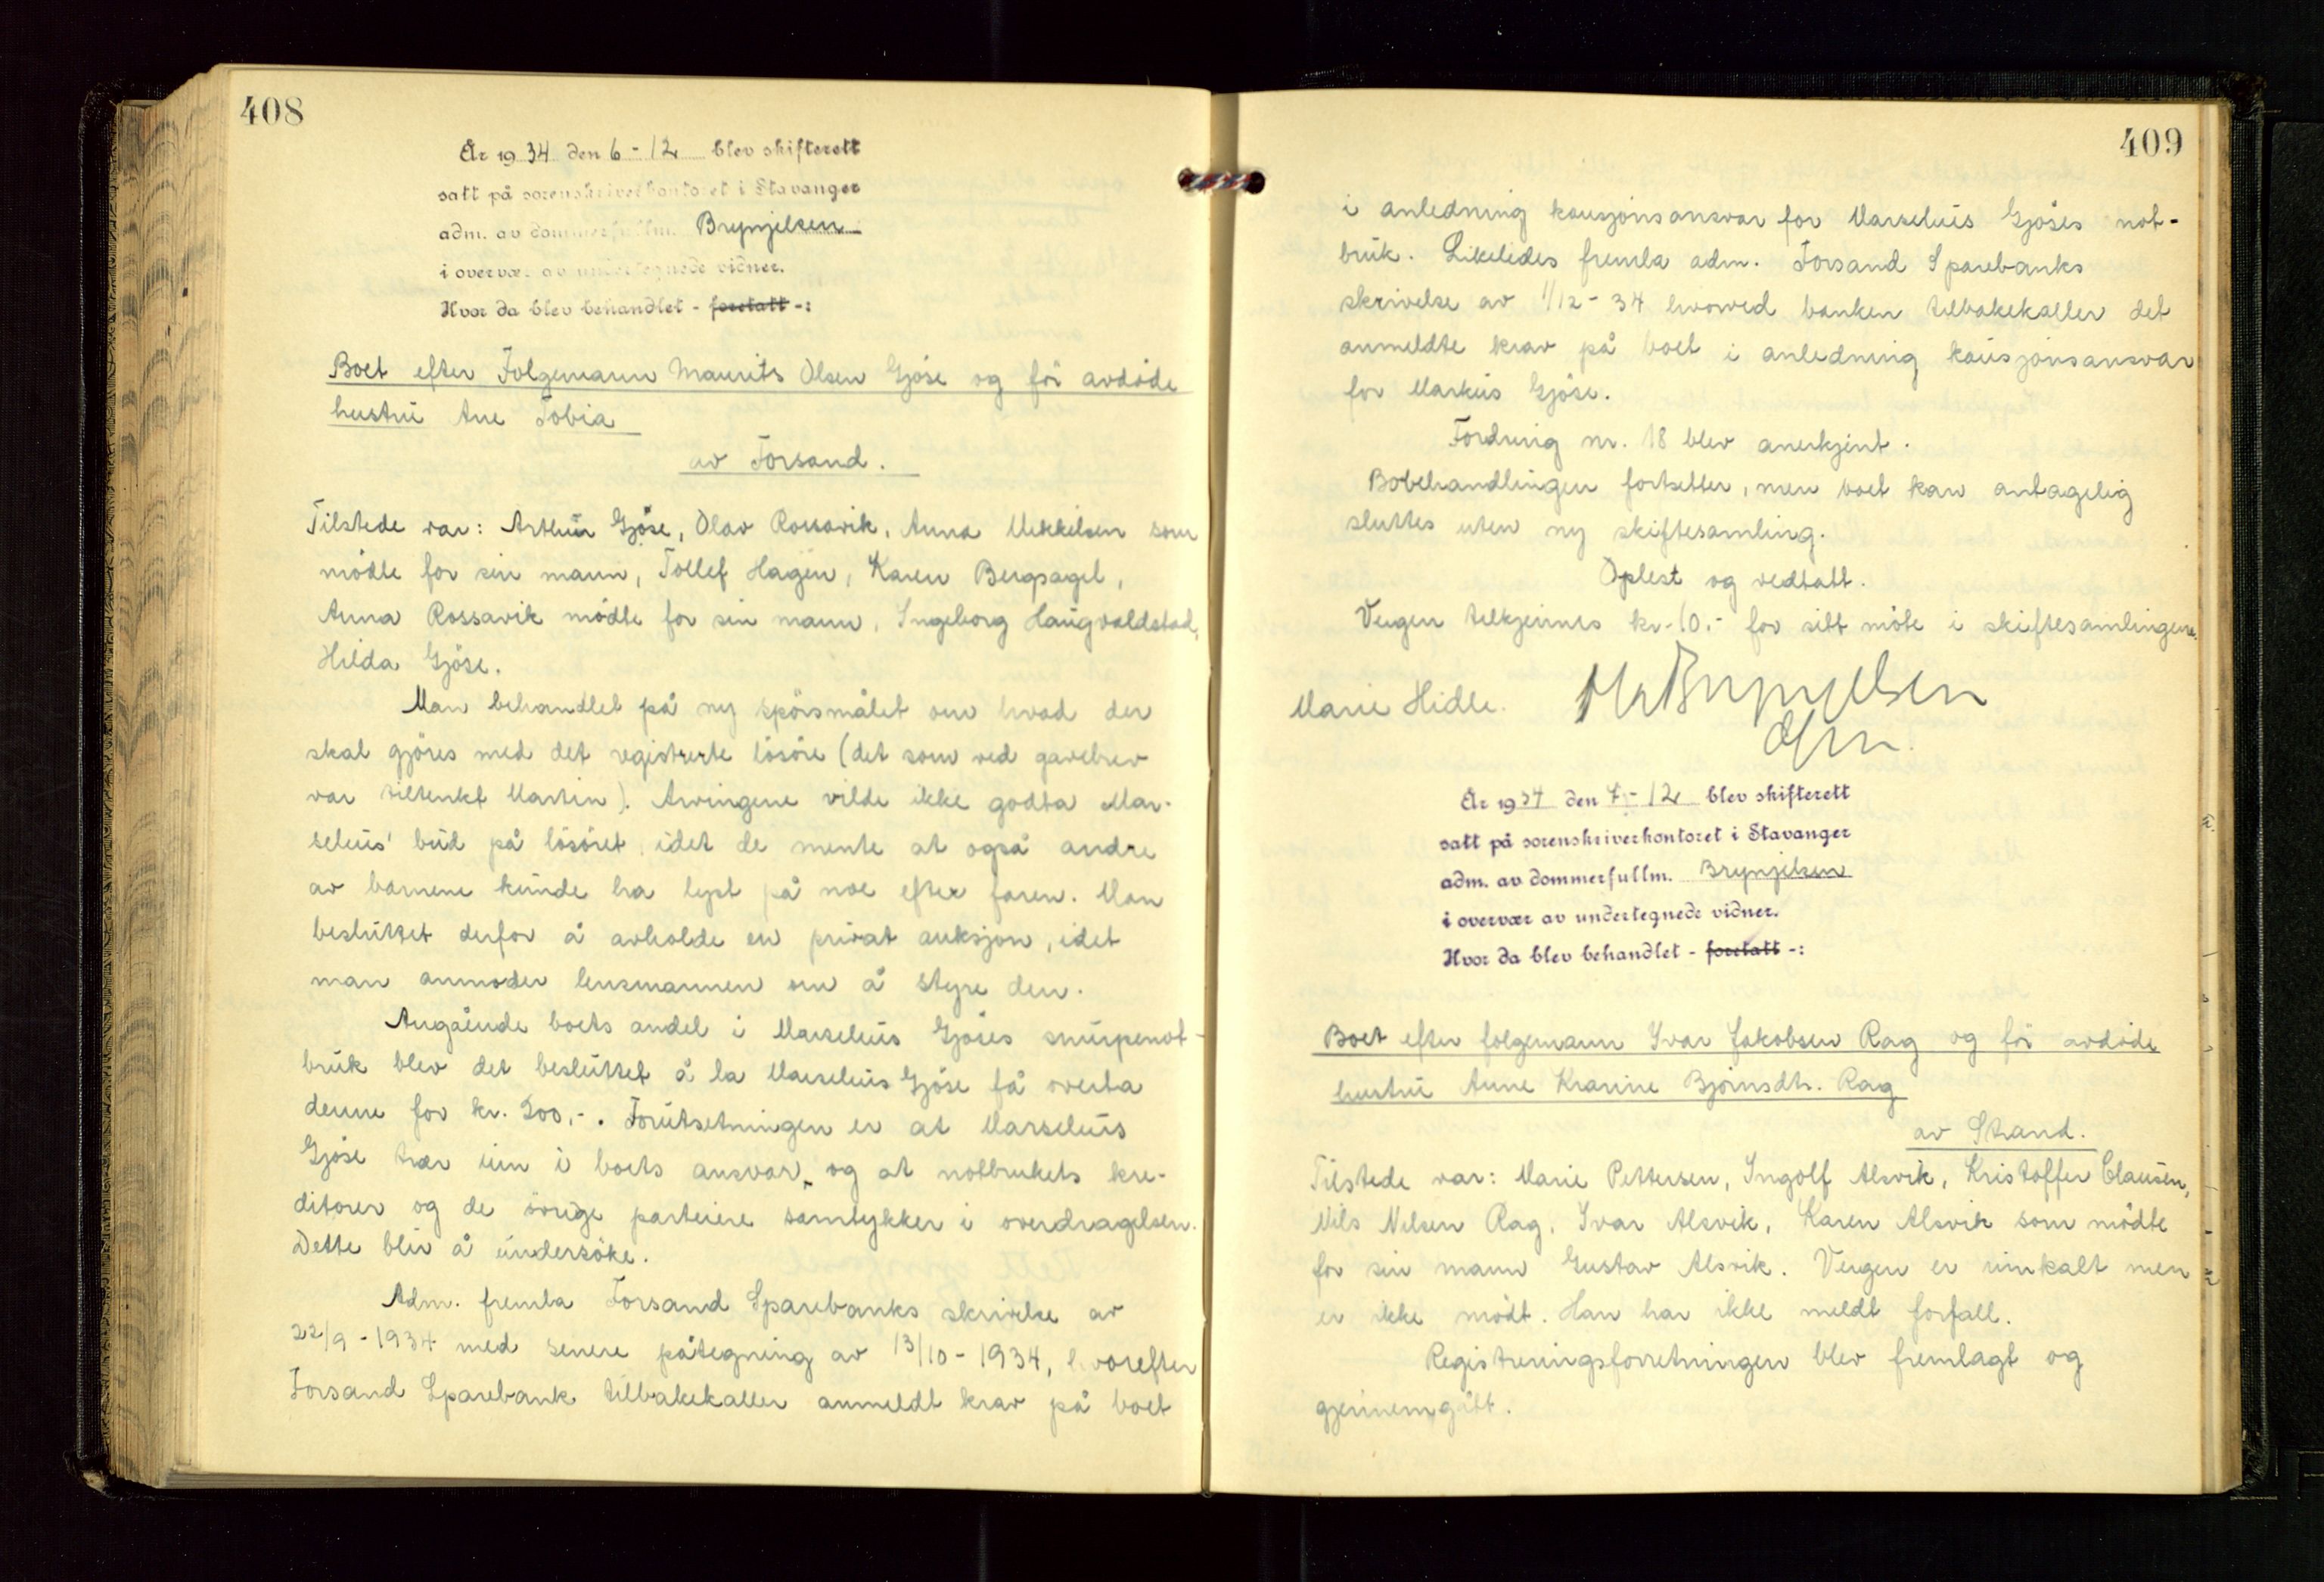 408
År 1934 den 6-12 blev skifterett
satt på sorenskriverkontoret i Stavanger
adm. av dommerfullm. Brynjelsen
i overvær av undertegnede vidner.
Hvor da blev behandlet - foretatt -:
Boet efter Folgemann Maurits Olsen Gjöse og för avdöde
hustru Ane Tobia
av Forsand.
Tilstede var: Arthur Gjöse, Olav Rossavik, Anna Mikkelsen som
mödte for sin mann, Tollef Hagen, Karen Bergsagel,
Anna Rossavik mödte for sin mann, Ingeborg Haugvaldstad,
Hilda Gjöse.
Man behandlet på ny spörsmålet om hvad der
skal gjöres med det registrerte lösöre (det som ved gavebrev
var tiltenkt Martin). Arvingene vilde ikke godta Mar-
selius' bud på lösöret, idet de mente at også andre
av barnene kunde ha lyst på noe efter faren. Man
besluttet derfor å avholde en privat auksjon, idet
man anmoder lensmannen om å styre den.
Angående boets andel i Marselius Gjöses snurpenot-
bruk blev det besluttet å la Marselius Gjöse få overta
denne for kr. 200,-. Forutsetningen er at Marselius
Gjöse trær inn i boets ansvar, og at notbrukets kre-
ditorer og de övrige parteiere samtykker i overdragelsen.
Dette blir å undersöke.
Adm. fremla Forsand Sparebanks skrivelse av
22/9-1934 med senere påtegning av 13/10-1934, hvorefter
Forsand Sparebank tilbakekaller anmeldt krav på boet
409
i anledning kausjonsansvar for Marselius Gjöses not-
bruk. Likeledes fremla adm. Forsand Sparebanks
skrivelse av 1/12-34 hvorved banken tilbakekaller det
anmeldte krav på boet i anledning kausjonsansvar
for Markus Gjöse.
Fordring nr. 18 blev anerkjent.
Bobehandlingen fortsetter, men boet kan antagelig
sluttes uten ny skiftesamling.
Oplest og vedtatt.
Vergen tilkjennes kr. 10.- for sitt möte i skiftesamlingene.
Marie Hidle. Brynjelsen
dfm.
År 1934 den 7-12 blev skifterett
satt på sorenskriverkontoret i Stavanger
adm. av dommerfullm. Brynjelsen
i overvær av undertegnede vidner.
Hvor da blev behandlet - foretatt -:
Boet efter folgemann Ivar Jakobsen Rag og för avdöde
hustru Anne Kranine Björnsdtr. Rag
av Strand.
Tilstede var: Marie Pettersen, Ingolf Alsvik, Kristoffer Clausen,
Nils Nilsen Rag, Ivar Alsvik, Karen Alsvik som mödte
for sin mann Gustav Alsvik. Vergen er innkalt men
er ikke mödt. Han har ikke meldt forfall.
Registreringsforretningen blev fremlagt og
gjennemgått.